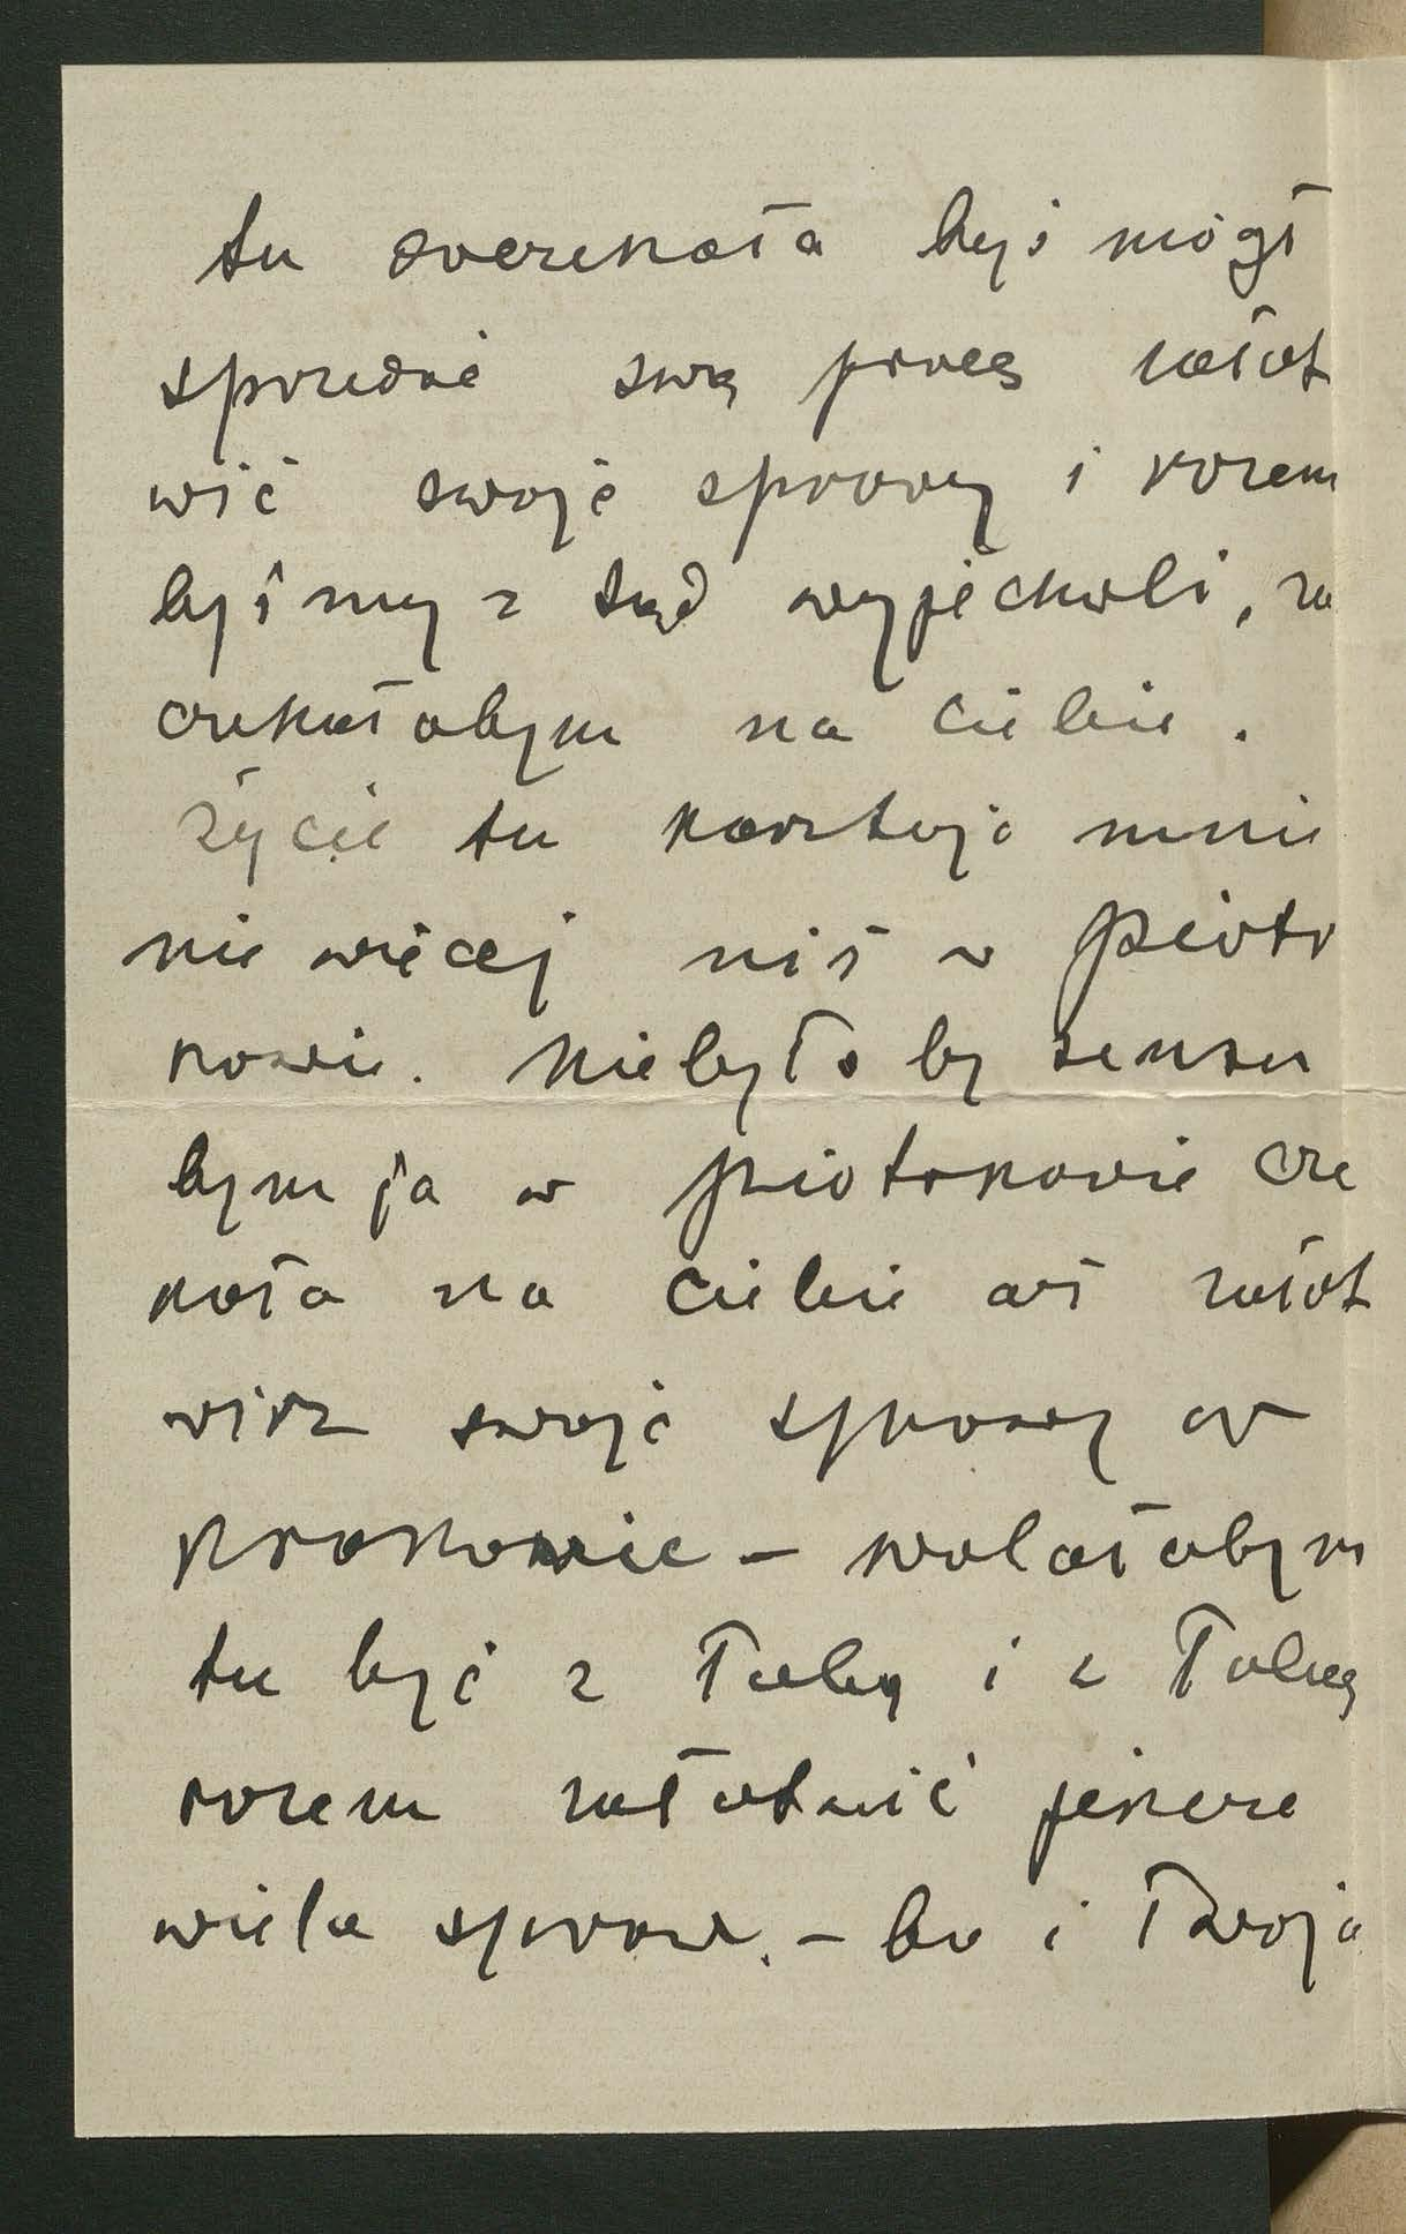 tu doczekała byś mógł
sprzedać swą pracę załat
wić swoje sprawy i razem
byśmy z tąd wyjechali, za
czekałabym na ciebie.
życie tu kosztuje mnie
nie więcej niż w Piotr
kowie. Niebyło by sensu
bym ja w Piotrkowie cze
kała na ciebie aż załat
wisz swoje sprawy w
Krakowie – wolałabym
tu być z Tobą i z Tobą
razem załatwić jeszcze
wiele spraw. – bo i Twoja